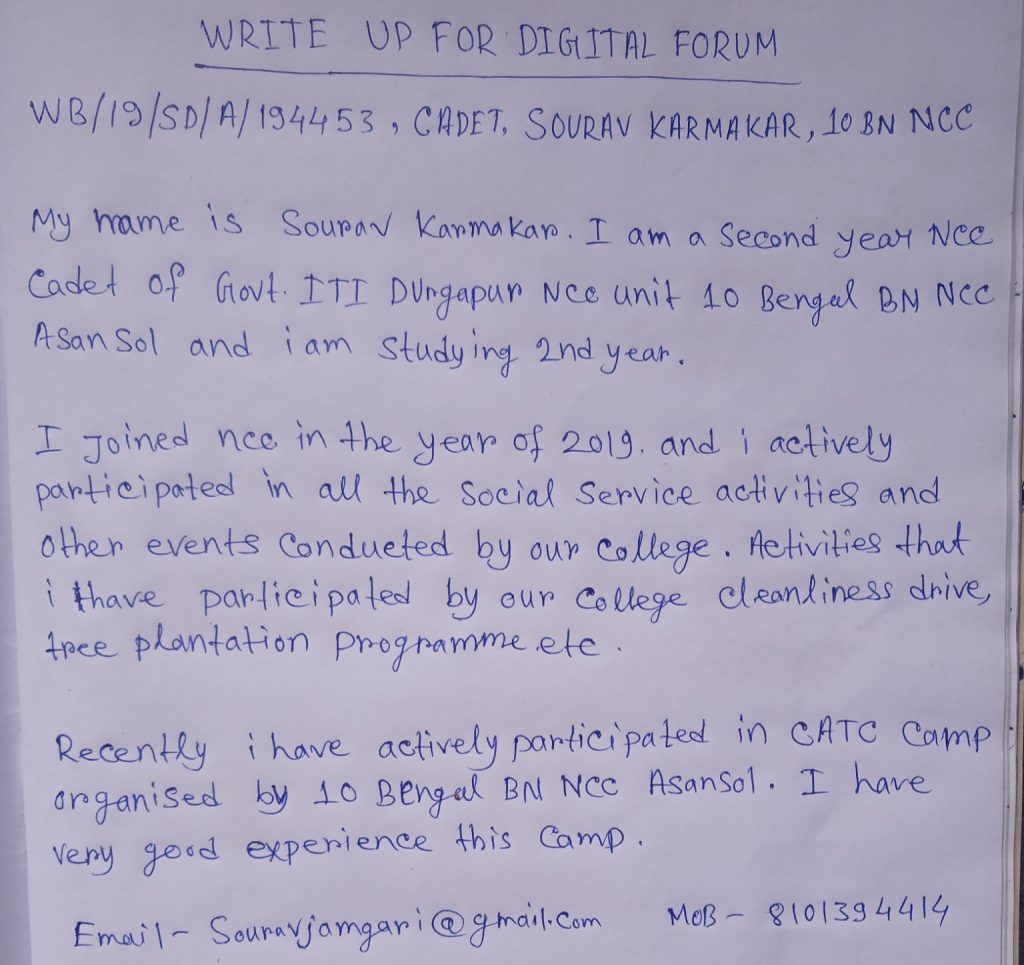 WRITE UP FOR DIGITAL FORUM
WB/19/SD/A/194453, CADET, SOURAV KARMAKAR, 10 BN NCC
My name is Sourav Karmakar. I am a Second year NCC
Cadet of Govt. ITI Durgapur NCC unit 10 Bengal BN NCC
Asansol and i am Studying 2nd year.
I Joined ncc in the year of 2019. and i actively
participated in all the Social Service activities and
other events Conducted by our College. Activities that
i have participated by our College cleanliness drive,
tree plantation Programme.etc.
Recently i have actively participated in CATC Camp
organised by 10 Bengal BN NCC Asansol. I have
very good experience this Camp.
Email- Souravjamgari@gmail.com MOB- 8101394414